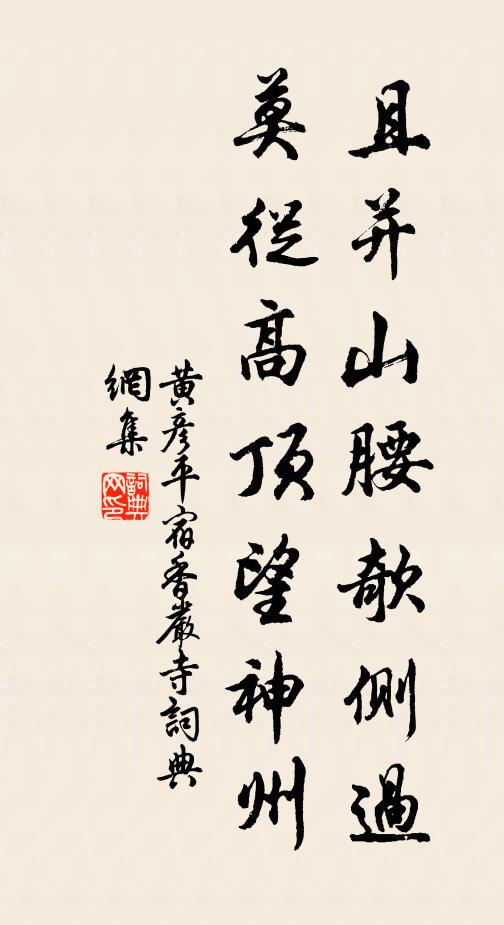 且并山腰欹側過
莫從高頂望神州
黃彥平宿香嚴寺詞典
網集
詞典网印